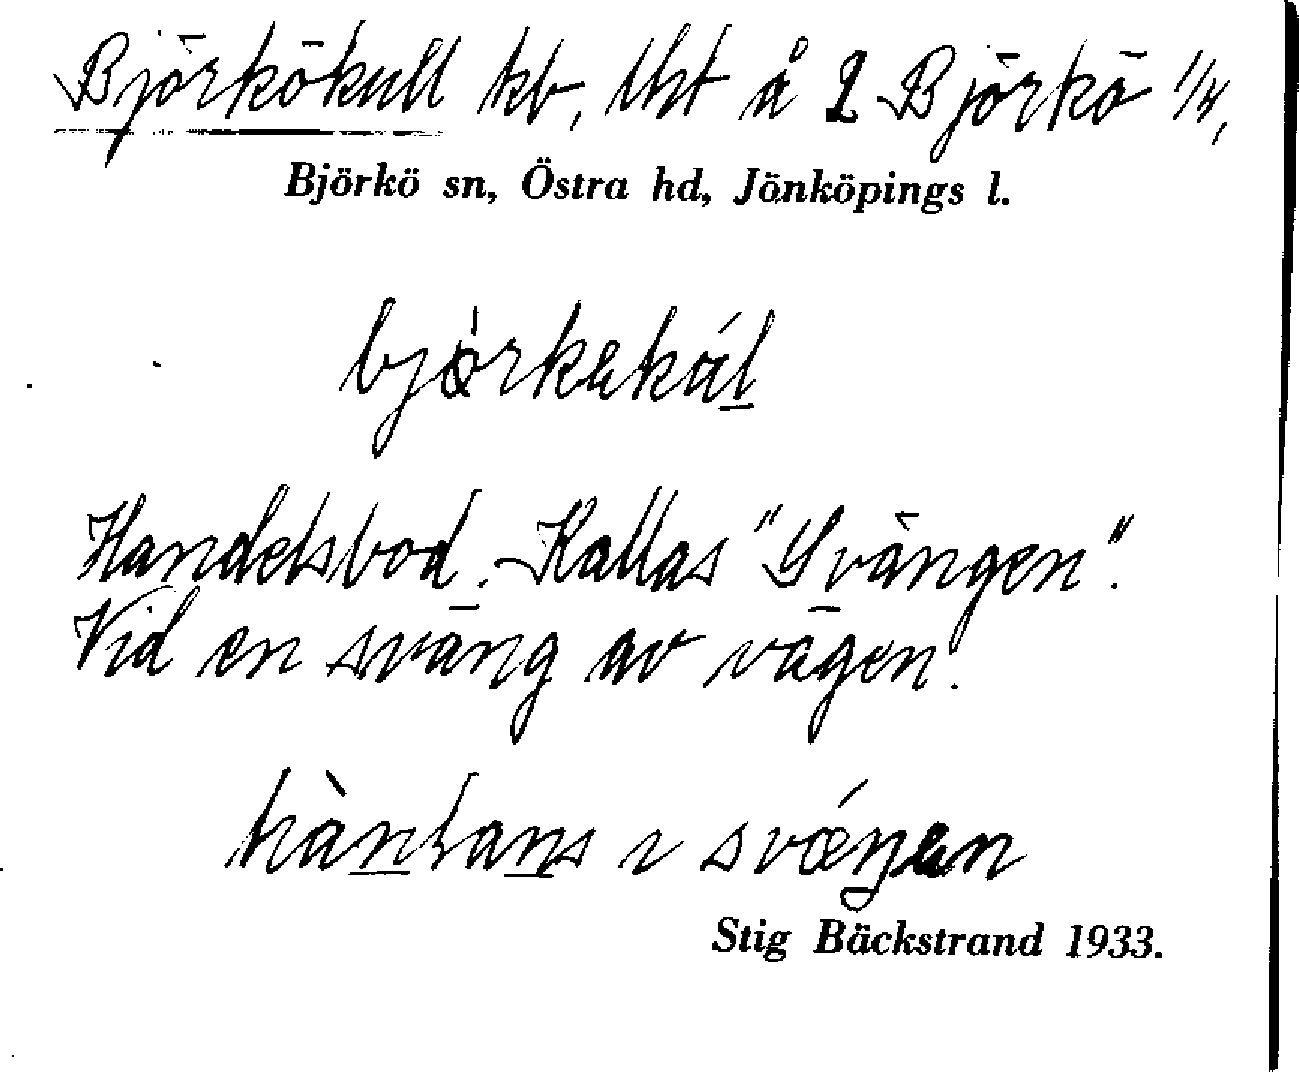 Björkökull kb, lht å 2 Björkö 1/4,
Björkö sn, Östra hd, Jönköpings l.
Handelsbod. Kallas "Svängen".
Vid en sväng av vägen.
Stig Bäckstrand 1933.